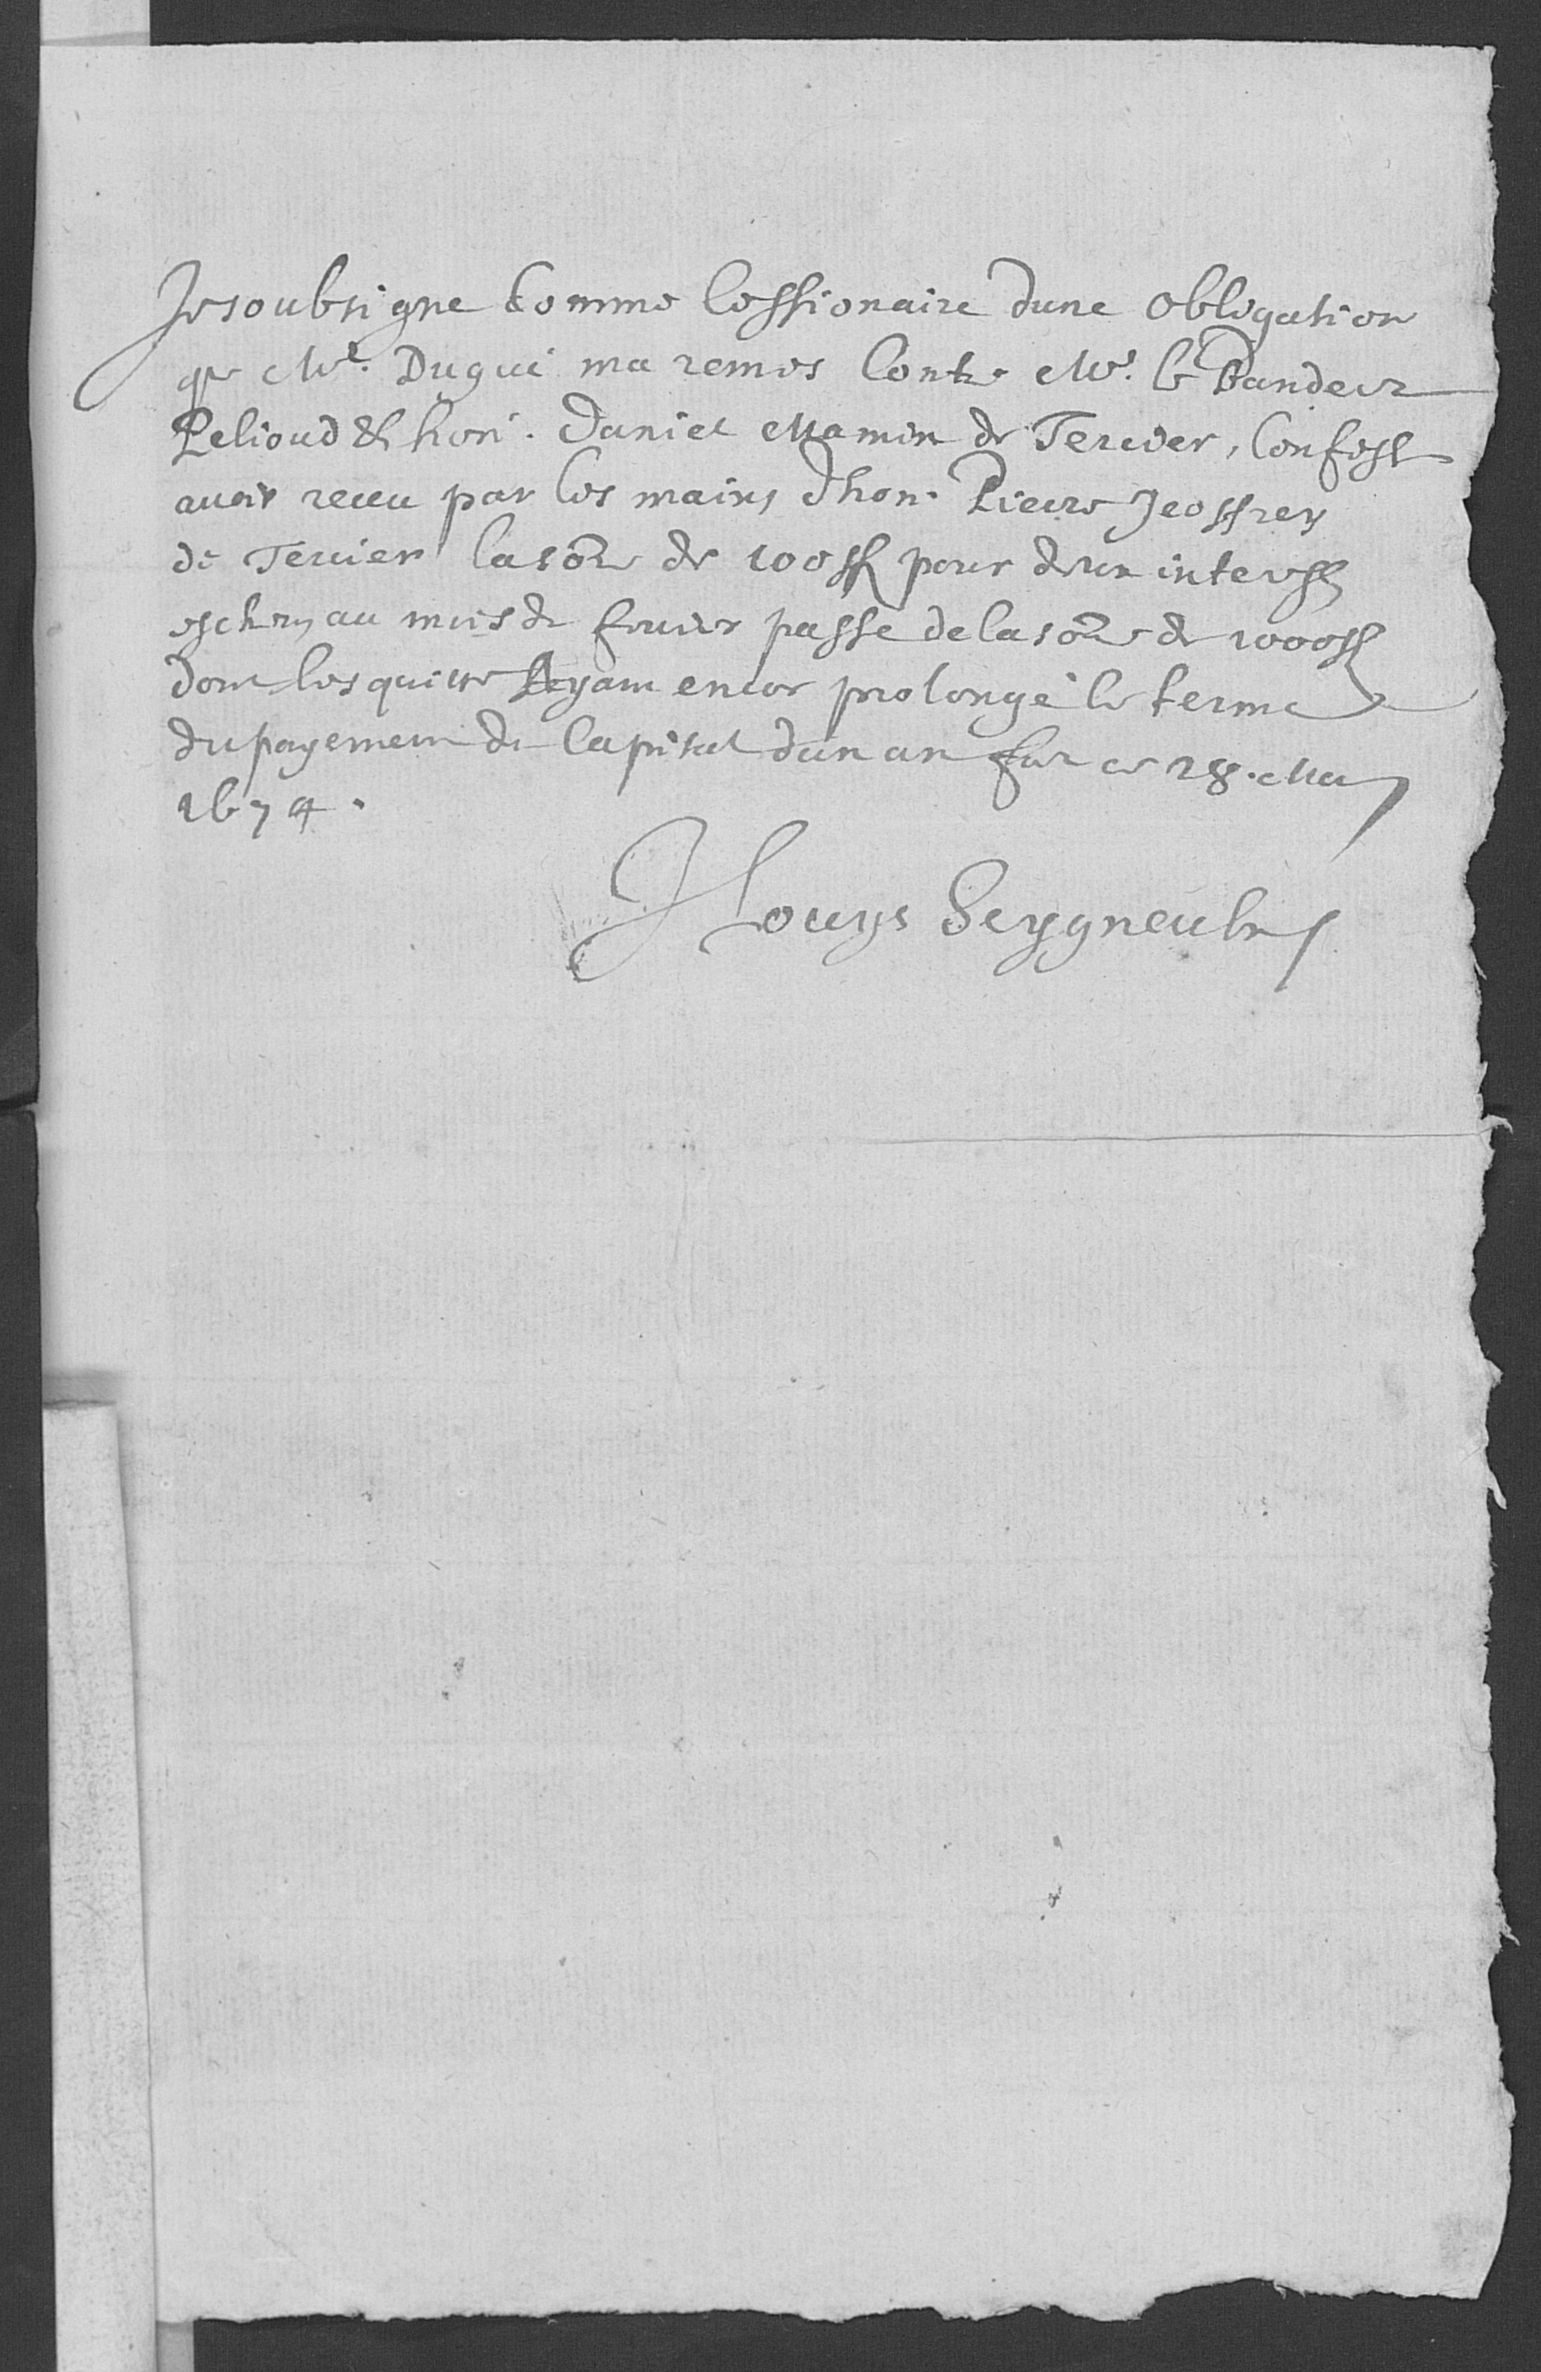 Je soubsigne Comme Cessionaire dune obligation
que Mr. Dugue ma remis Contre Mr. le Banderet
Pelioud & hon. Daniel Mamin de Tercier, Confesse
avoir receu par les mains dhon. Pierre Jeoffrey
de Tercier la sōe de 100ff pour deux interest
escheus au mois de fevrier passe de la sōe de 1000ff
dont les quitte Ayant encor prolongé le terme
du payement du Capital dun an fait ce 28. May
1674.
J Louys Seygneulx